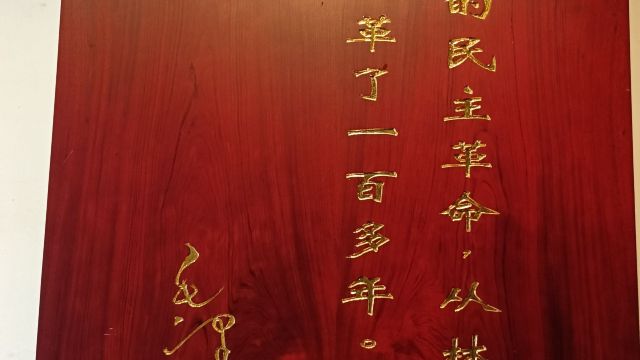 的民主革命，从林
革了一百多年。
毛泽